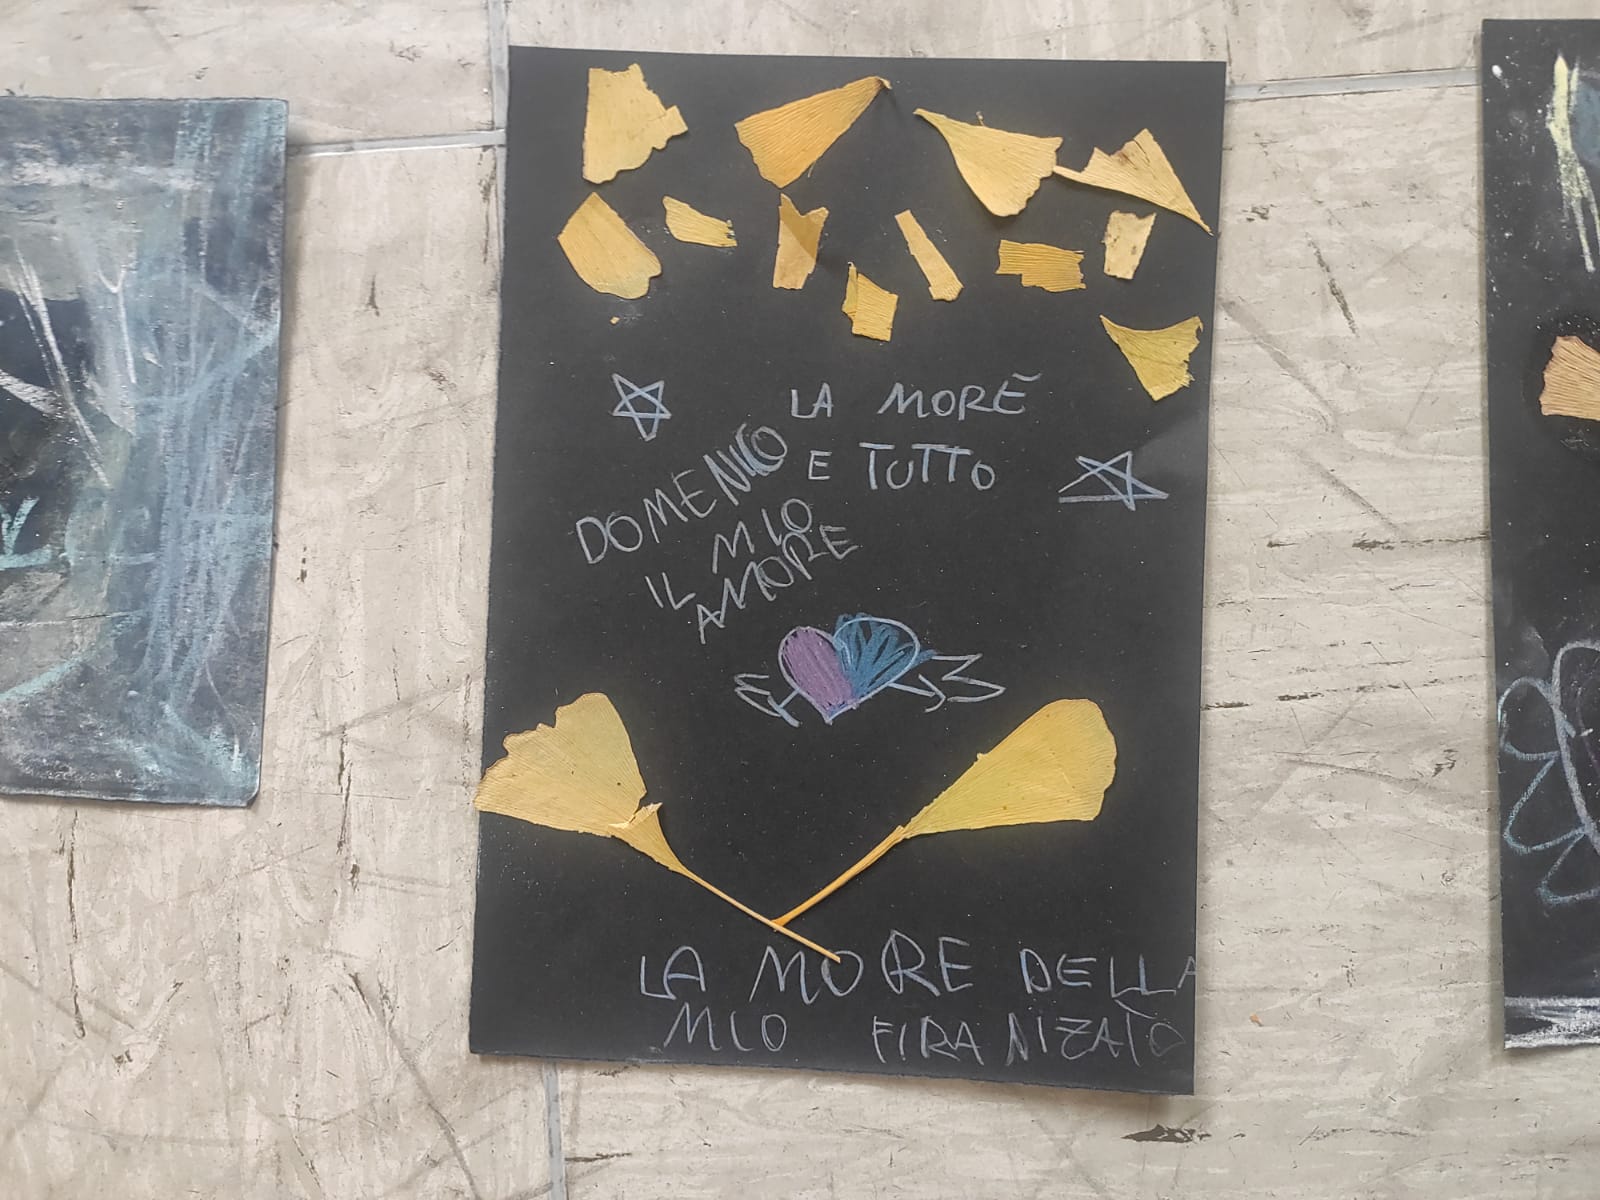 LA MORE
E TUTTO
DOMENICO
IL MIO
AMORE
LA MORE DELLA
MIO FIRANIZATO